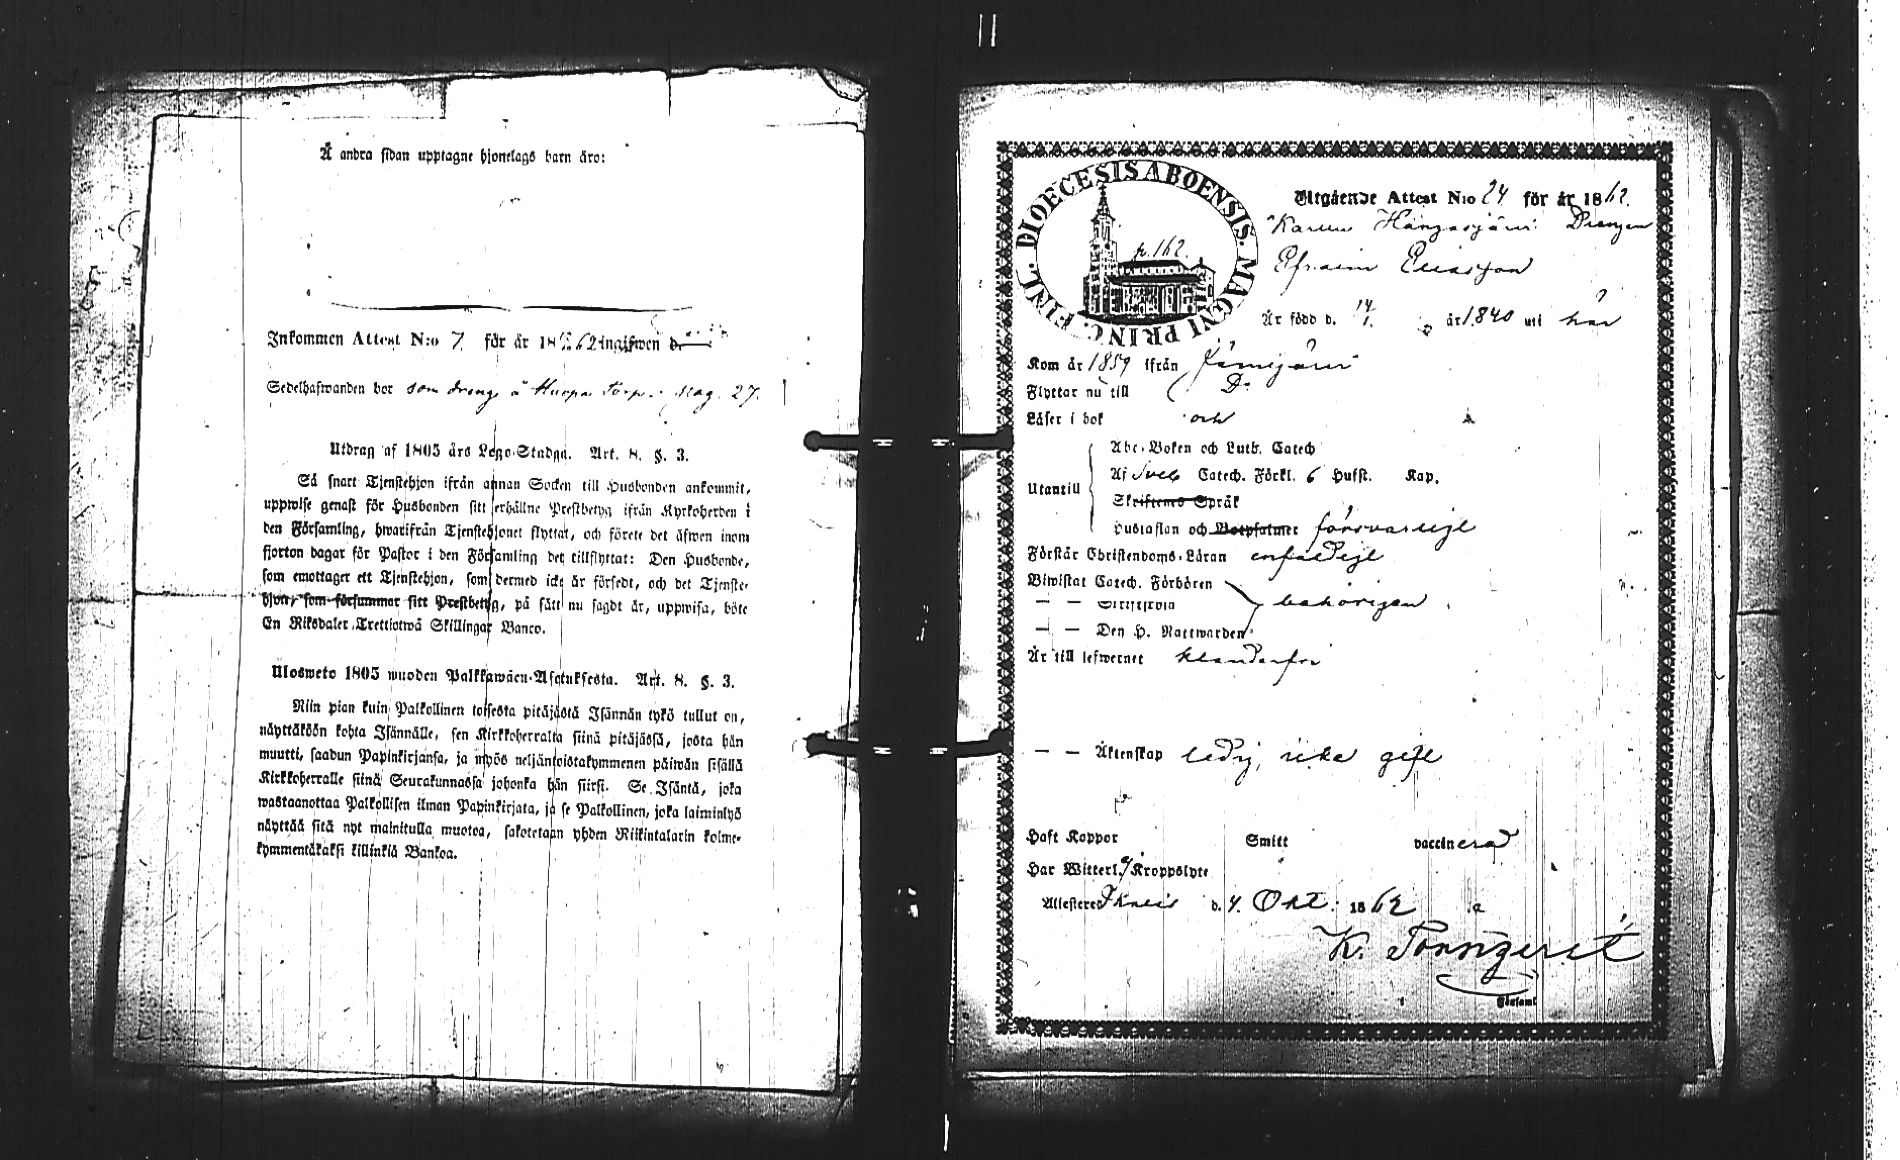 Å andra sidan upptagne hjonelags barn äro:
Inkommen Attest N:o 7 för år 1862 ingifwen d.
Sedelhafwanden bor som dreng å Torp. pag. 27.
Utdrag af 1805 års Lego-Stadga. Art. 8. §. 3.
Så snart Tjenstehjon ifrån annan Socken till Husbonden ankommit,
uppwise genast för Husbonden sitt erhållne Prestbetyg ifrån Kyrkoherden i
den Församling, hwarifrån Tjenstehjonet flyttat, och förete det äfwen inom
fjorton dagar för Pastor i den Församling det tillflyttat: Den Husbonde,
som emottager ett Tjenstehjon, som dermed icke är försedt, och det Tjenste-
hjon, som försummar sitt Prestbetyg, på sätt nu sagdt är, uppwisa, böte
En Riksdaler Trettiotwå Skillingar Banco.
Ulosweto 1805 wuoden Palkkawäen-Asetuksesta. Art. 8. §. 3.
Niin pian kuin Palkollinen toisesta pitäjästä Isännän tykö tullut on,
näyttäköön kohta Isännälle, sen Kirkkoherralta siinä pitäjässä, josta hän
muutti, saadun Papinkirjansa, ja myös neljäntoistakymmenen päiwän sisällä
Kirkkoherralle siinä Seurakunnassa johonka hän siirsi. Se Isäntä, joka
wastaanottaa Palkollisen ilman Papinkirjata, ja se Palkollinen, joka laiminlyö
näyttää sitä nyt mainitulla muotoa, sakotetaan yhden Riikintalarin kolme-
kymmentäkaksi killinkiä Bankoa.
FINL. DIOECESIS ABOENSIS. MAGNI PRINC.
p. 162.
Utgående Attest N:o 24 för år 1862.
Drengen
Efraim Ericsson
Är född d. 14/1. år 1840 uti här
Kom år 1859 ifrån Jämijärvi
Flyttar nu till Do
Läser i bok och
Abc-Boken och Luth. Catech
Utantill
Af Sveb Catech. Förkl. 6 Hufst. Kap.
Skriftenes Språk
Hustaflan och Botpsalmer försvarligt
Förstår Christendoms-Läran enfaldigt
Biwistat Catech. Förhören
— — Skriftskola
behörigen
— — Den H. Nattwarden
Är till lefwernet klanderfri
— — Äktenskap ledig, icke gift
Haft Koppor Smitt vaccinerad
Har Witterl. Kroppslyte
Attesterad Ikalis d. 4. Okt. 1862
K. Tonngren